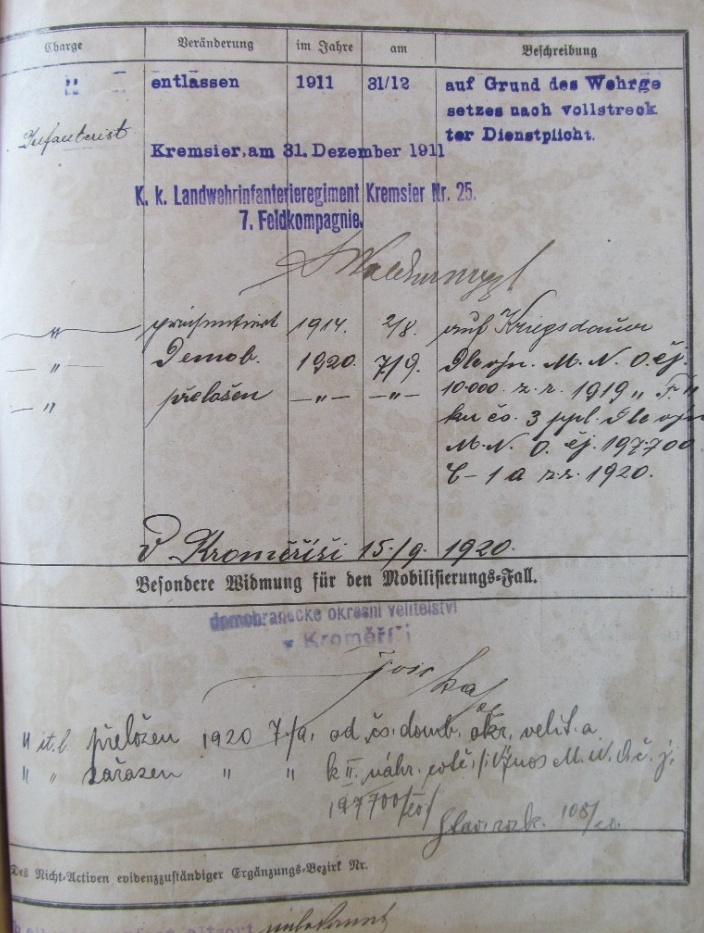 Charge Veränderung im Jahre am Beschreibung
" entlassen 1911 31/12 auf Grund des Wehrge
setzes nach vollstreck
Infanterist ter Dienstplicht.
Kremsier, am 31. Dezember 1911
K. k. Landwehrinfanterieregiment Kremsier Nr. 25.
7. Feldkompagnie.
" präsentiert 1914. 2/8. auf Kriegsdauer
" Demob. 1920. 7/9. Dle výn. M. N. O. čj.
10.000 z. r. 1919 „ F. "
" přeložen —"— —"— ku čs. 3 ppl. Dle výn
M. N. O. čj. 197.700
z. r. 1920.
V Kroměříži 15./9. 1920.
Besondere Widmung für den Mobilisierungs-Fall.
domobranecké okresní velitelství
v Kroměříži
" přeložen 1920 7/9. od čs. domb. okr. velit. a
" " zařazen " " k II. náhr. M. N. O. č. j.
197700/
108/
Des Nicht-Activen evidenzzuständiger Ergänzungs-Bezirk Nr.